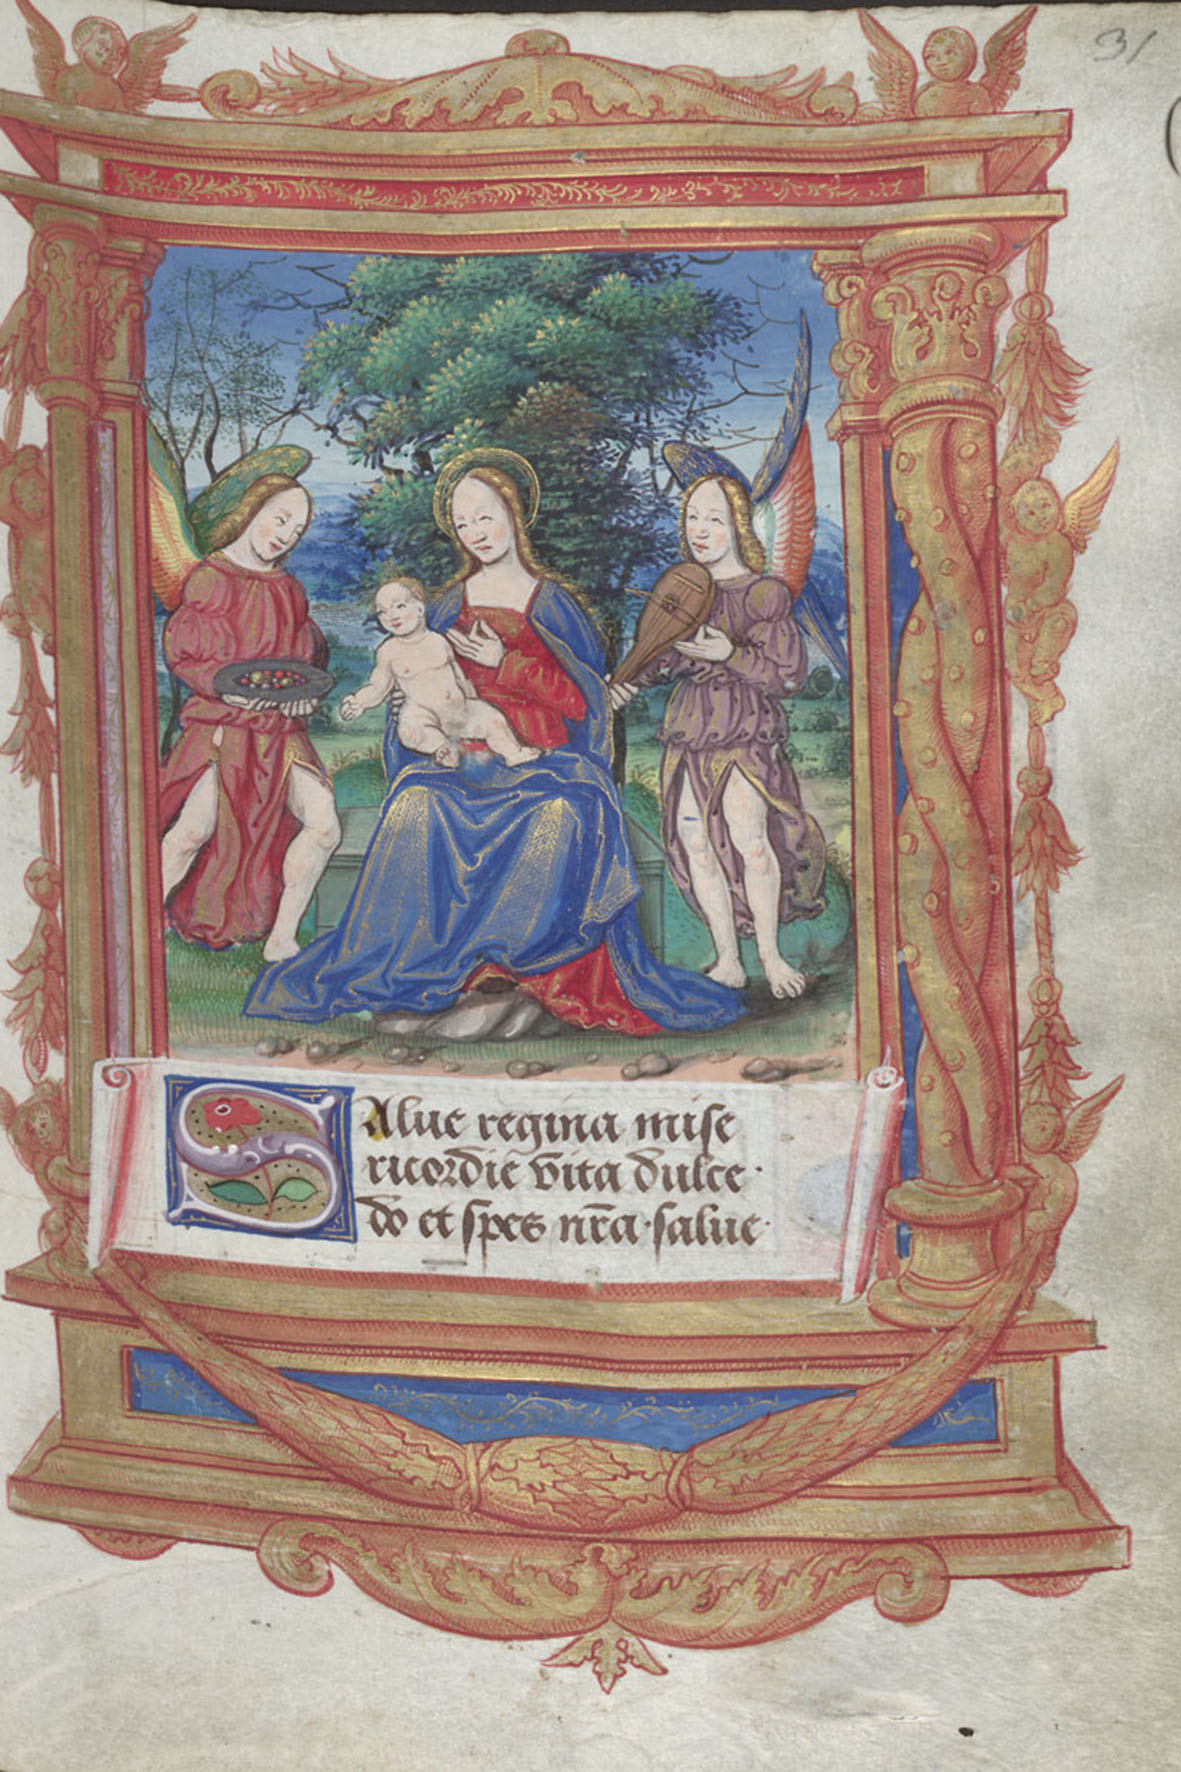 31
Salue regina mise
ricordie vita dulce·
do et spes nr̄a·salue·